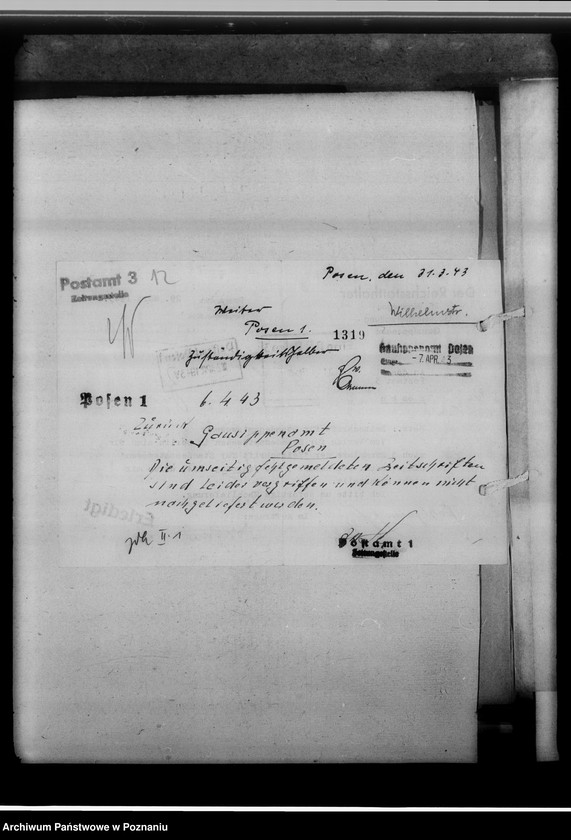 Postamt 3 12
Zeitungsstelle
Posen, den 31.3.43
Weiter
Posen 1.
1319
Wilhelmstr.
Zuständigkeitshalber
Gausippenamt Posen
-7. APR. 43
Posen 1
6. 4 43
Zurück
Gausippenamt
Posen
Die umseitig fehlgemeldeten Zeitschriften
sind leider vergriffen und können nicht
nachgeliefert werden.
Erledigt
II.1
Postamt 1
Zeitungsstelle
Archiwum Państwowe w Poznaniu